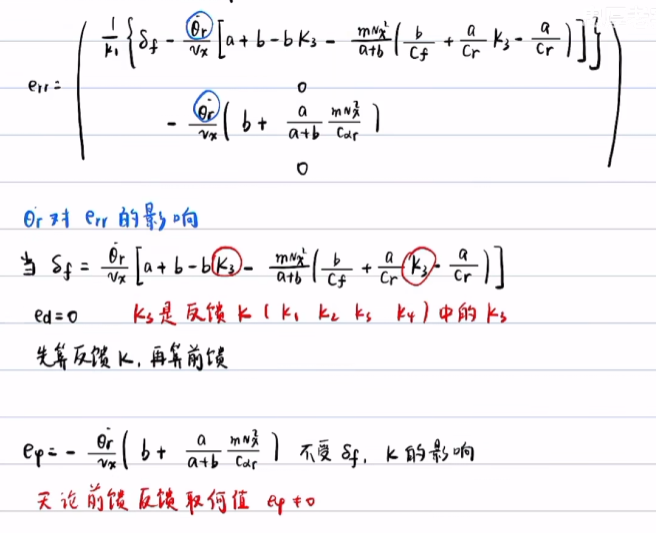 err = ( 1/k₁ { δf - θ̇r/vx [ a + b - bK₃ - mvx²/(a+b) ( b/Cf + a/Cr K₃ - a/Cr ) ] }
0
- θ̇r/vx ( b + a/(a+b) mvx²/Cαr )
0 )
θ̇r对 err 的影响
当 δf = θ̇r/vx [ a + b - bK₃ - mvx²/(a+b) ( b/Cf + a/Cr K₃ - a/Cr ) ]
ed=0 K₃是反馈K(K₁ K₂ K₃ K₄)中的K₃
先算反馈K,再算前馈
eφ = - θ̇r/vx ( b + a/(a+b) mvx²/Cαr ) 不受δf, K的影响
无论前馈反馈取何值 eφ≠0